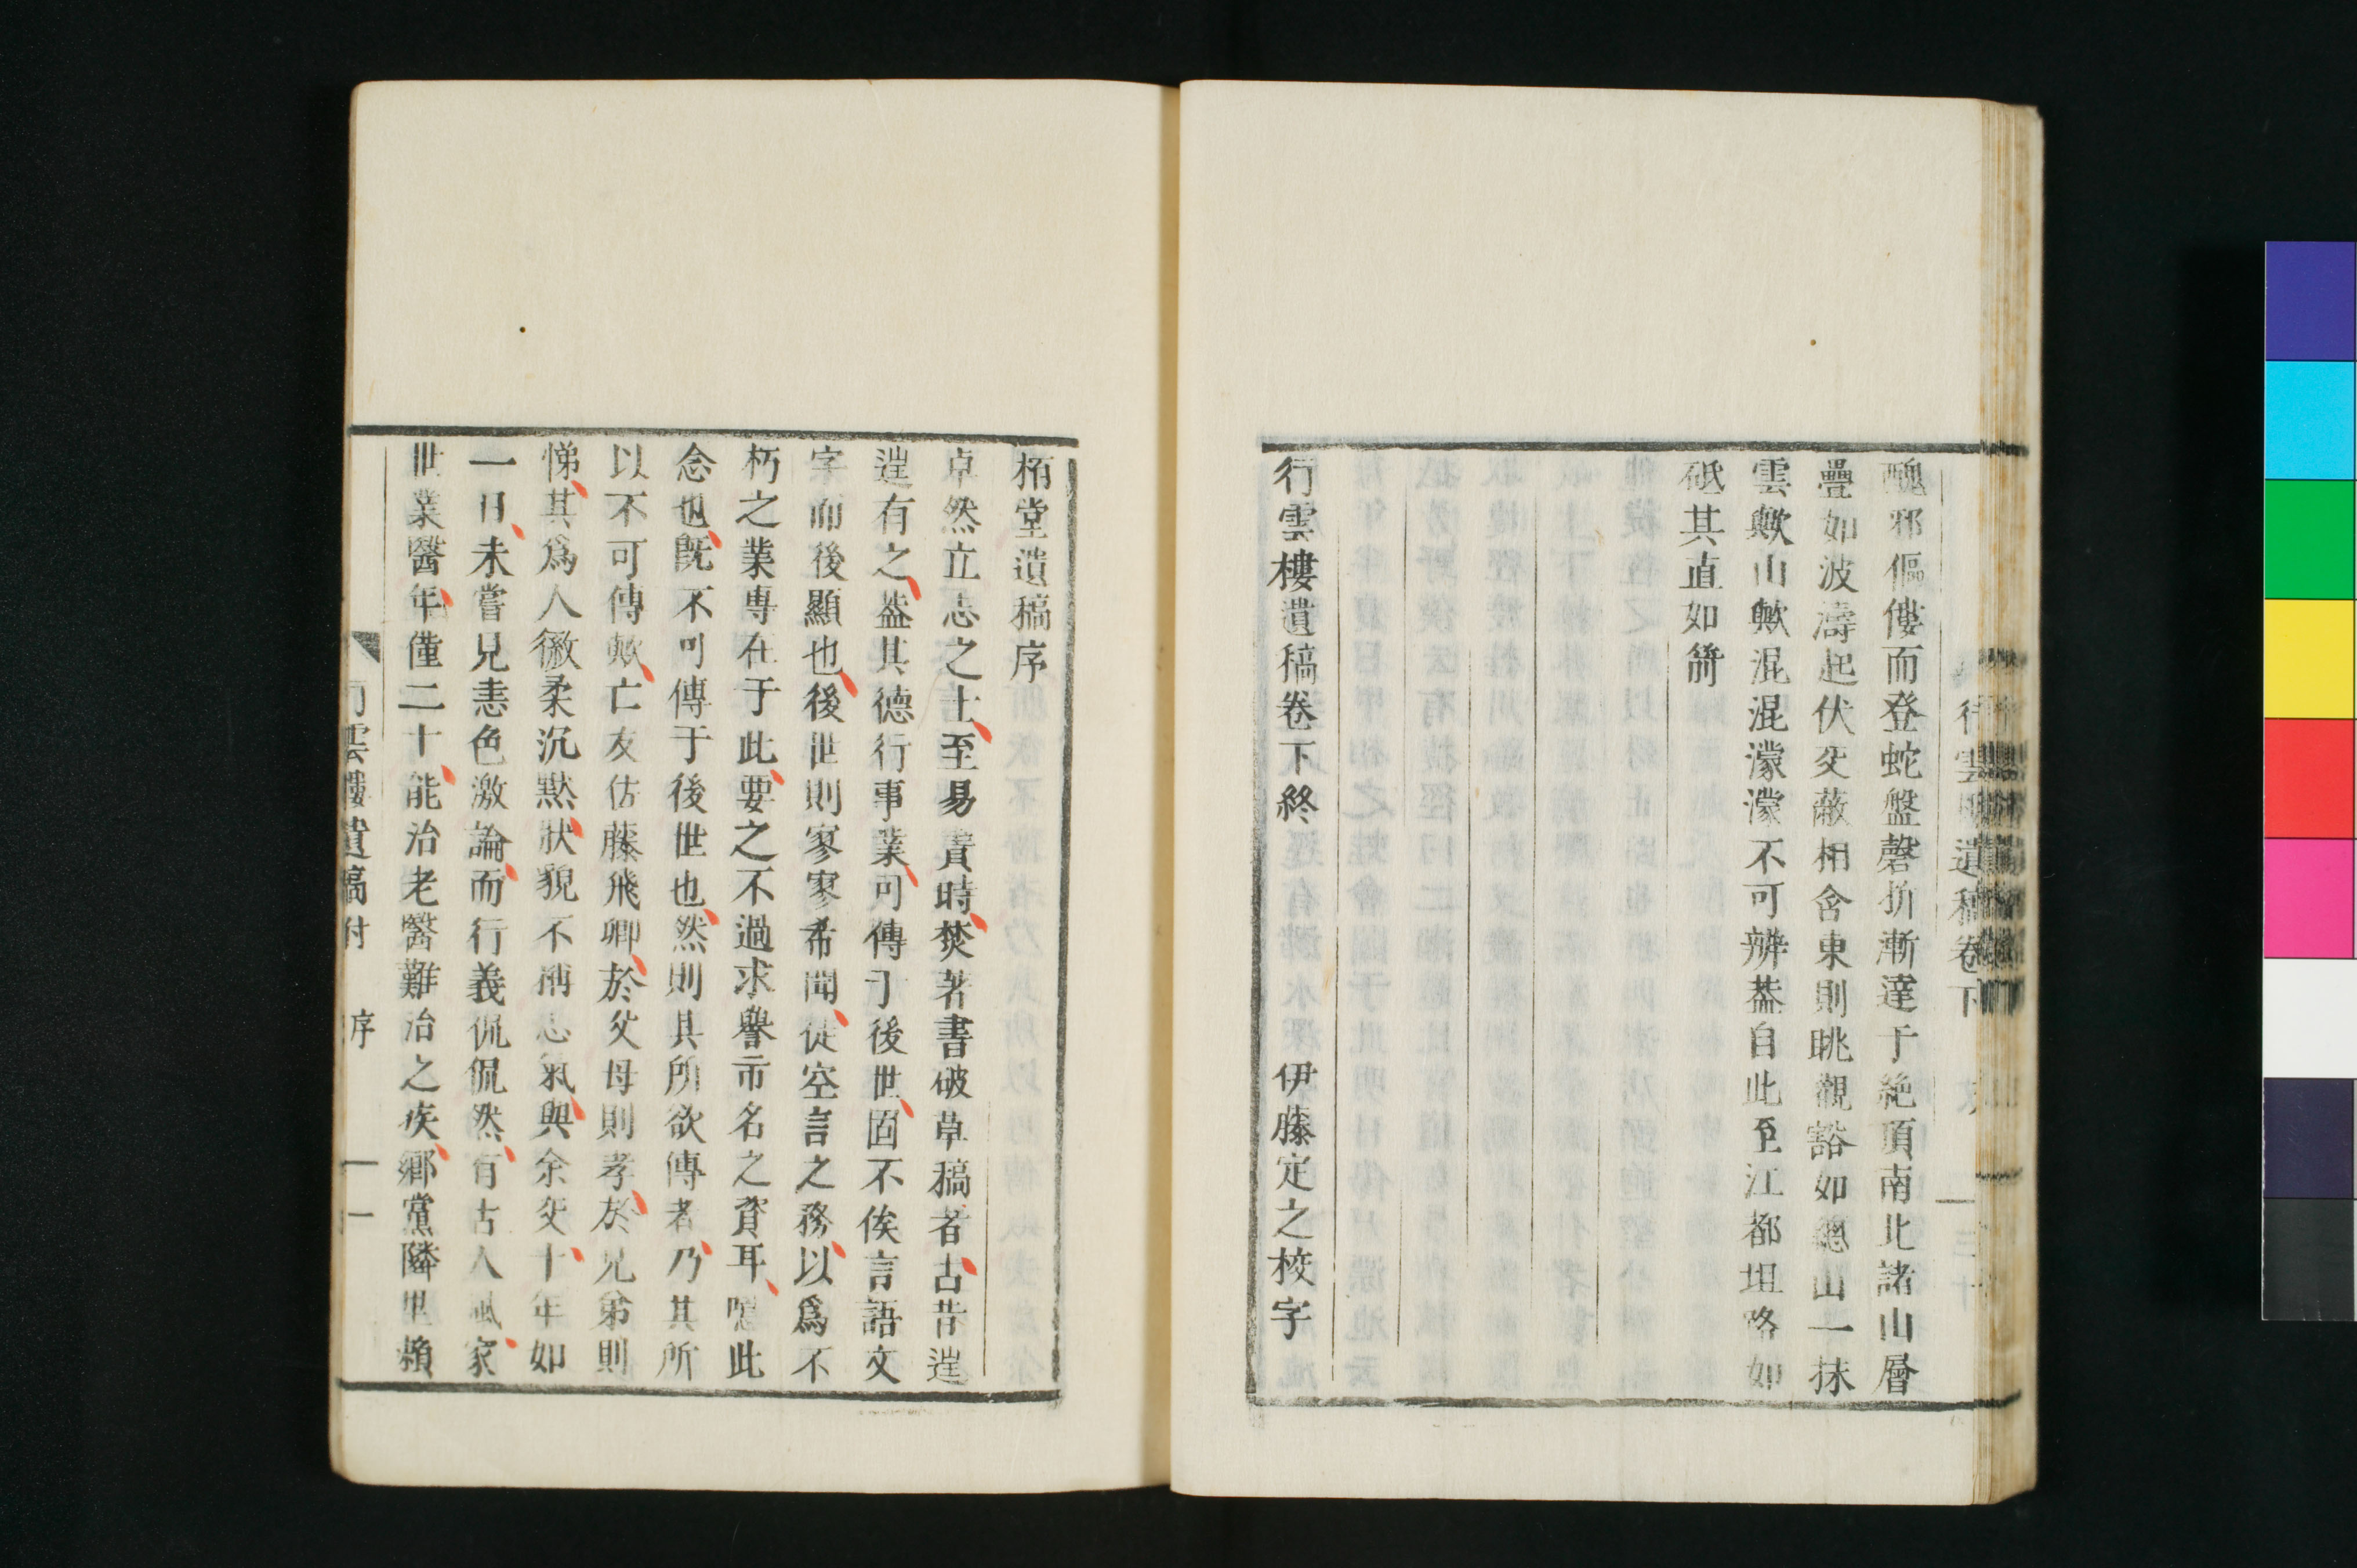 醜邪傴僂而登蛇盤磬折漸達于絶頂南北諸山層
疊如波濤起伏㚐蔽相舍東則眺觀豁如總山一抹
雲歟山歟混混濛濛不可辨葢自此至江都坦路如
砥其直如箭
行雲樓遺稿卷下終 伊藤定之校字
行雲樓遺稿卷下 三十
栢堂遺稿序
卓然立志之士至易簀時焚著書破草稿者古昔逞
逞有之葢其德行事業可傳于後世固不俟言語文
字而後顯也後世則寥寥希聞徒空言之務以爲不
朽之業專在于此要之不過求譽市名之資耳噫此
念也旣不可傳于後世也然則其所欲傳者乃其所
以不可傳歟亡友佐藤飛卿於父母則孝於兄弟則
悌其爲人徽柔沉黙狀貌不稱志氣與余交十年如
一日未嘗見恚色激論而行義侃侃然有古人風家
世業醫年僅二十能治老醫難治之疾鄉黨隣里頼
行雲樓遺稿付 序 一